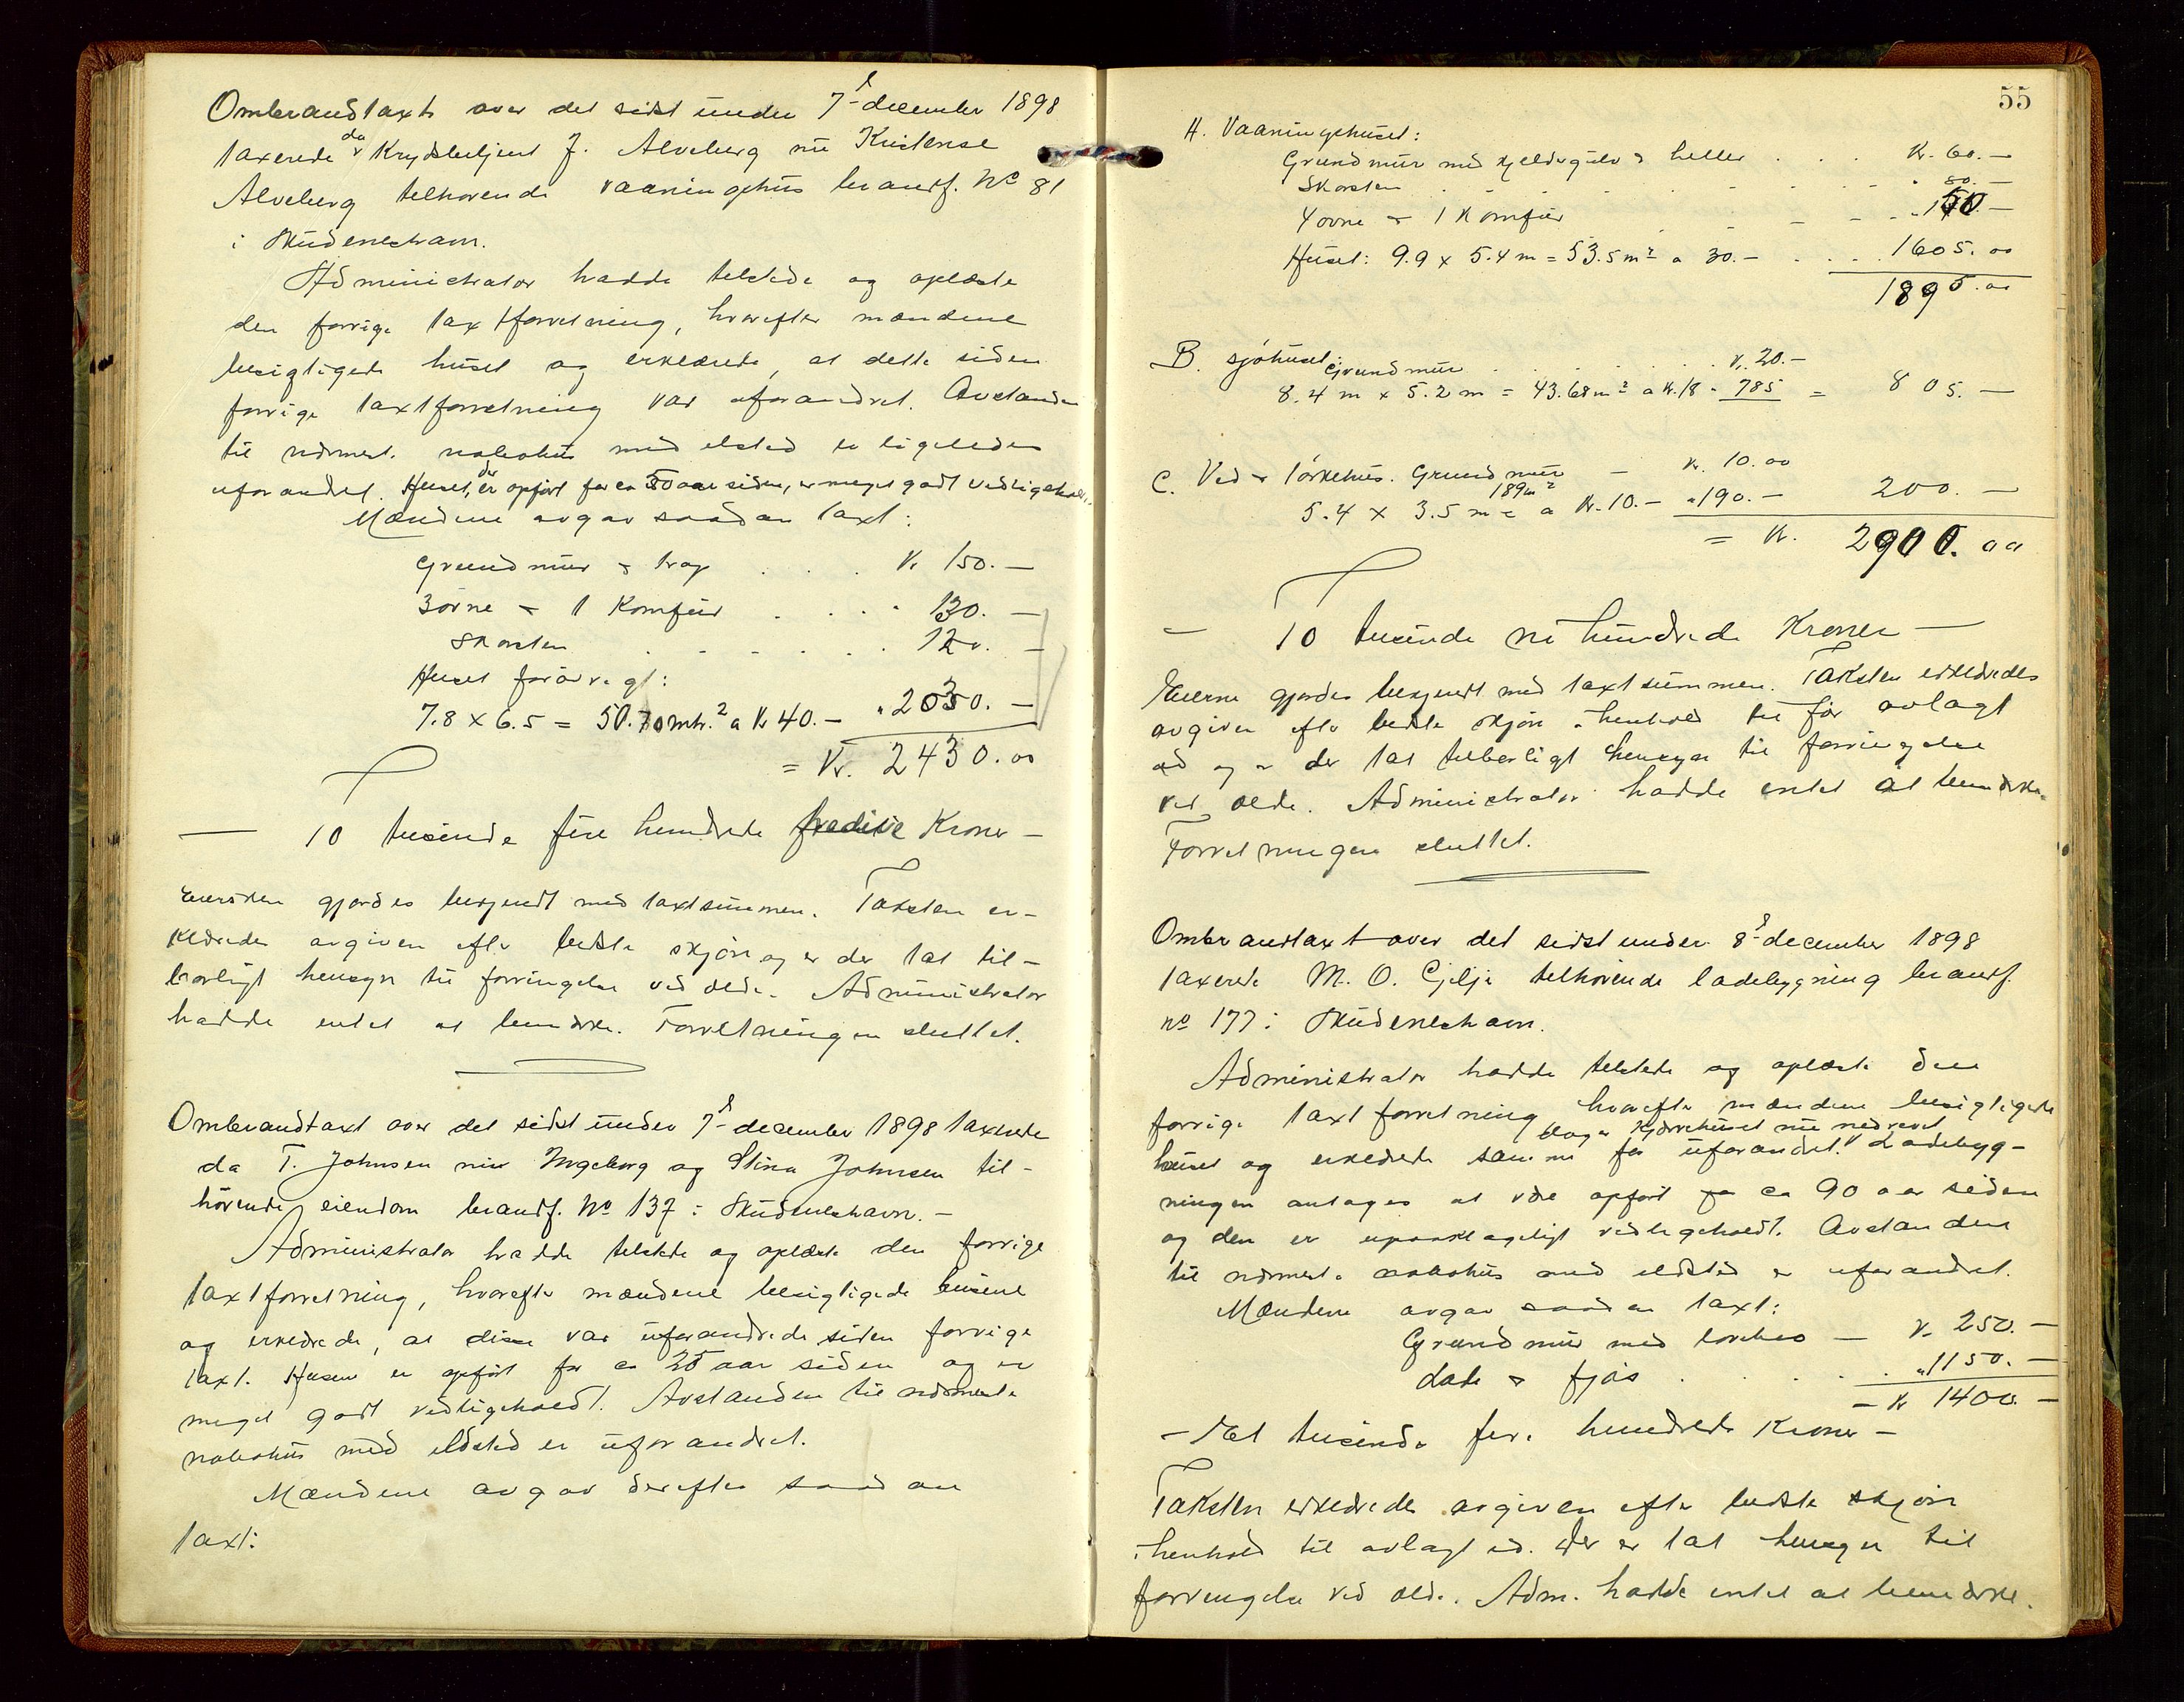 Ombrandtaxt over det sidst under 7de december 1898
taxerede da v Krydsbetjent J. Alveberg nu Kristense
Alveberg tilhørende vaaningshus brandf. No 81
i Skudeneshavn.
Administrator hadde tilstede og oplæste
den forrige taxtforretning, hvorefter mændene
besigtigede huset og erklærede, at dette siden
forrige taxtforretning var uforandret. Avstanden
til nærmest. nabohus med ilsted er ligeledes
uforandret. Huset, der er opført for ca 50 aar siden, er meget godt vedligeholdt.
Mændene avgav saadan taxt:
Grundmur & trap . . . Kr 150.—
3 ovne & 1 Komfur . . . " 130.—
Skorsten . . . . . . 120.—
Huset forøvrigt:
7.8 x 6.5 = 50.70 mtr.² a Kr 40.— " 2030.—
= Kr. 2430.00
— To tusinde fire hundrede tredive Kroner —
Eiersken gjordes bekjendt med taxtsummen. Taksten er-
klæredes avgiven efter bedste skjøn og er der tat til-
børligt hensyn til forringelse ved ælde. Administrator
hadde intet at bemærke. Forretningen sluttet.
Ombrandtaxt over det sidst under 7de december 1898 taxerede
da T. Johnsen nu Ingeborg og Stina Johnsen til-
hørende eiendom brandf. No 137 i Skudeneshavn.—
Administrator hadde tilstede og oplæste den forrige
taxtforretning, hvorefter mændene besigtigede husene
og erklærede, at disse var uforandrede siden forrige
taxt. Husene er opført for ca 25 aar siden og er
meget godt vedligeholdt. Avstanden til nærmeste
nabohus med ildsted er uforandret.
Mændene avgav derefter saadan
taxt:
55
A. Vaaningshuset:
Grundmur med kjeldergulv & heller . . . Kr. 60.—
Skorsten . . . . . . " 80.—
4 ovne & 1 Komfur . . . " 150.—
Huset: 9.9 x 5.4 m = 53.5 m² a 30.— . . . 1605.00
1895.00
B. Sjøhuset: Grundmur . . . . . . Kr. 20.—
8.4 m x 5.2 m = 43.68 m² a Kr. 18 " 785 = 805.—
C. Ved & tørkehus. Grundmur — Kr. 10.00
5.4 x 3.5 m = 189 m² a Kr. 10.— " 190.— 200.—
= Kr. 2900.00
— To tusinde ni hundrede Kroner —
Eierne gjordes bekjendt med taxtsummen. Taksten erklæredes
avgiven efter bedste skjøn i henhold til før avlagt
ed og er der tat tilbørligt hensyn til forringelse
ved ælde. Administrator hadde intet at bemærke.
Forretningen sluttet.
Ombrandtaxt over det sidst under 8de december 1898
taxerede M. O. Gjelja tilhørende ladebygning brandf.
no 177 i Skudeneshavn.
Administrator hadde tilstede og oplæste den
forrige taxtforretning hvorefter mændene besigtigede
huset og erklærede samme for uforandret. dog er kjørrehuset nu nedrevet v Ladebyg-
ningen antages at være opført for ca 90 aar siden
og den er upaaklageligt vedligeholdt. Avstanden
til nærmeste nabohus med ildsted er uforandret.
Mændene avgav saadan taxt:
Grundmur med lovebro — Kr. 250.—
Lade & fjøs . . . . " 1150.—
— Kr 1400.—
— Et tusinde fire hundrede Kroner —
Taksten erklæredes avgiven efter bedste skjøn
i henhold til avlagt ed. Der er tat hensyn til
forringelse ved ælde. Adm. hadde intet at bemærke.